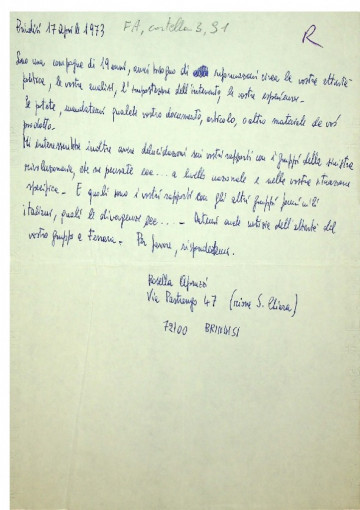 Brindisi 17 aprile 1973 FA, cartella 3, 91
R
Sono una compagna di 19 anni, avrei bisogno di informazioni circa la vostra attività
politica, le vostre analisi, l'impostazione dell'intervento, le vostre esperienze.
Se potete, mandatemi qualche vostro documento, articolo, o altro materiale da voi
prodotto.
Mi interesserebbe inoltre avere delucidazioni sui vostri rapporti con i gruppi della sinistra
rivoluzionaria, che ne pensate ecc... a livello nazionale e nella vostra situazione
specifica - E quali sono i vostri rapporti con gli altri gruppi femminili
italiani, quali le divergenze ecc... - notizie dell'attività del
vostro gruppo a Ferrara - Per favore, rispondetemi.
Rosella
Via Pastrengo 47 (rione S. Chiara)
72100 BRINDISI